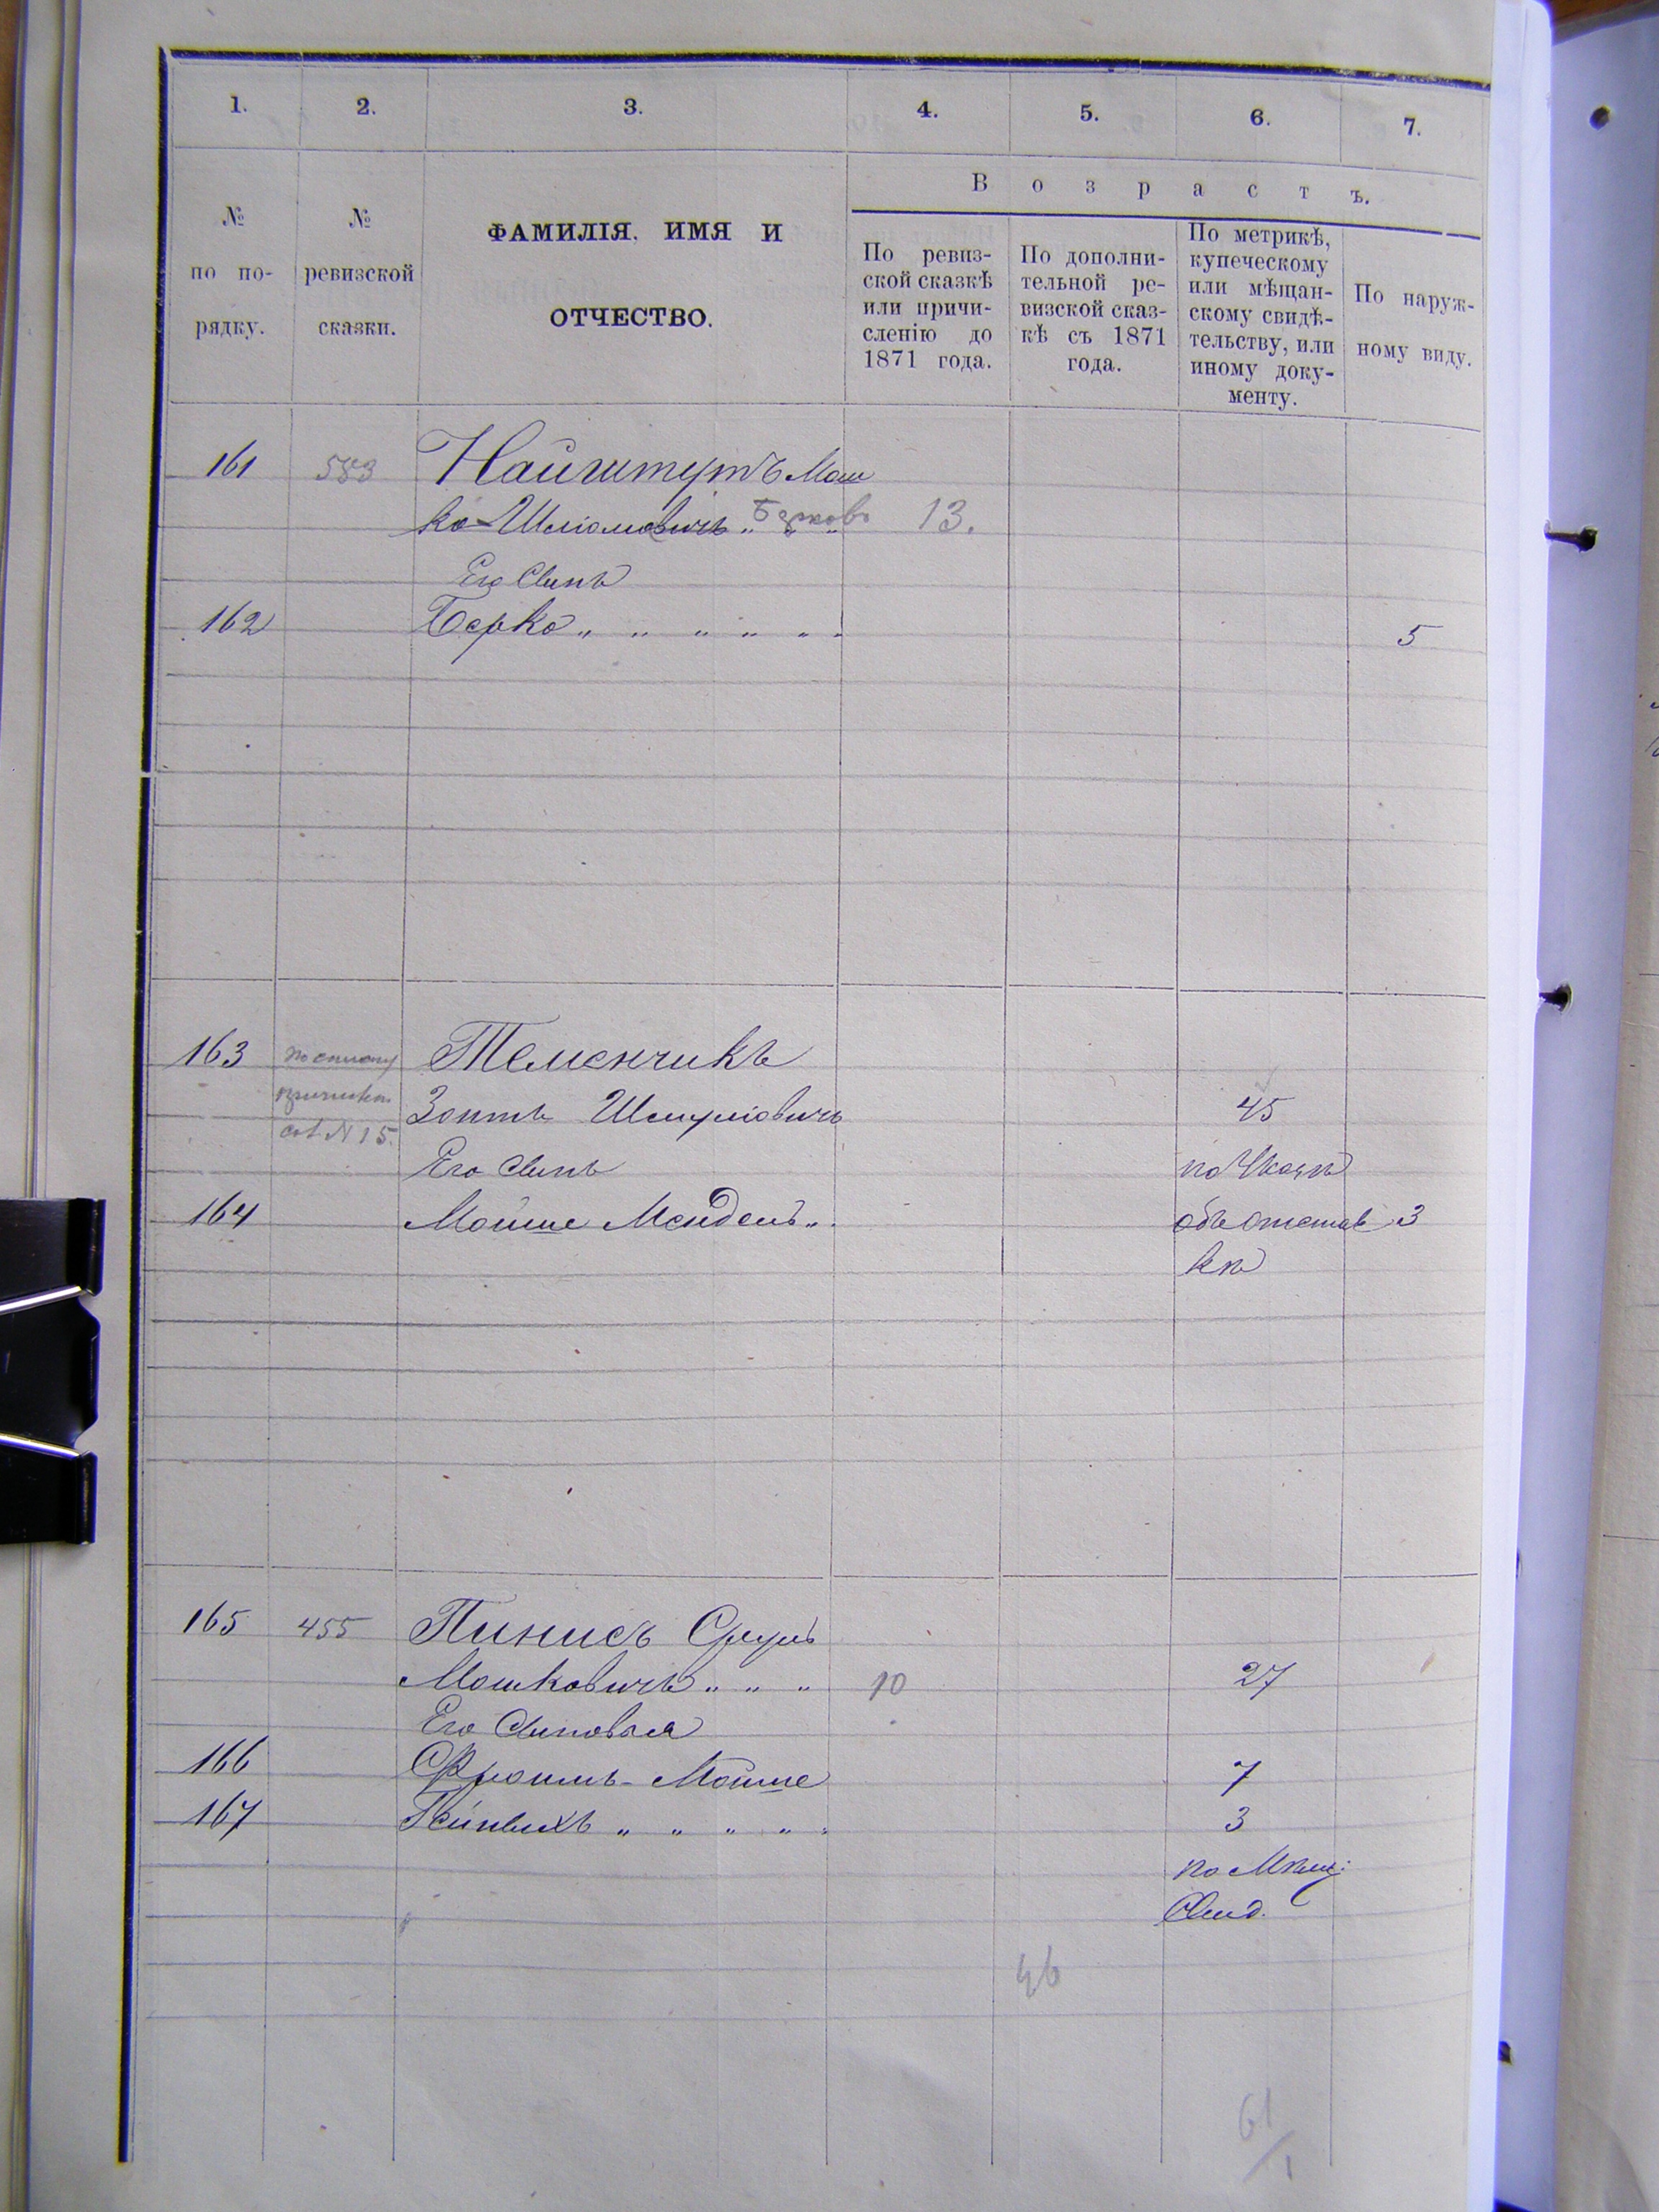 1. 2. 3. 4. 5. 6. 7.
В о з р а с т ъ.
№ по по- рядку.
№ ревизской сказки.
ФАМИЛІЯ, ИМЯ И
ОТЧЕСТВО.
По ревиз-
ской сказкѣ
или причи-
сленію до
1871 года.
По дополни-
тельной ре-
визской сказ-
кѣ съ 1871
года.
По метрикѣ,
купеческому
или мѣщан-
скому свидѣ-
тельству, или
иному доку-
менту.
По наруж-
ному виду.
161 583 Найштутъ Мош
ко Шліомовичъ Берковъ 13.
Его Сынъ
162 Берко 5
163 Теменчикъ
Шмулiовичъ 45
сот. N 15.
Его Сынъ по Указу
164 Мойше Мендель объ отстав 3
кѣ
165 455 Пинисъ Сруль
Мошковичъ 10 27
Его Сыновья
166 Фроимъ-Мойше 7
167 Пейвихъ 3
по Мѣщ:
Свид.
46
61
1